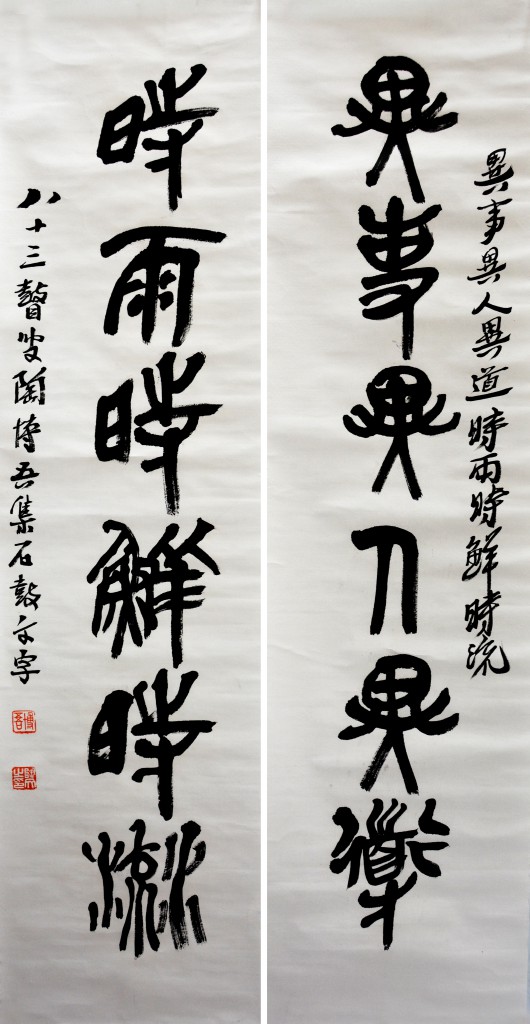 異事異人異道時雨時鮮時流
異事異人異道
時雨時鮮時流
八十三瞽叟陶博吾集石鼓文字
博吾